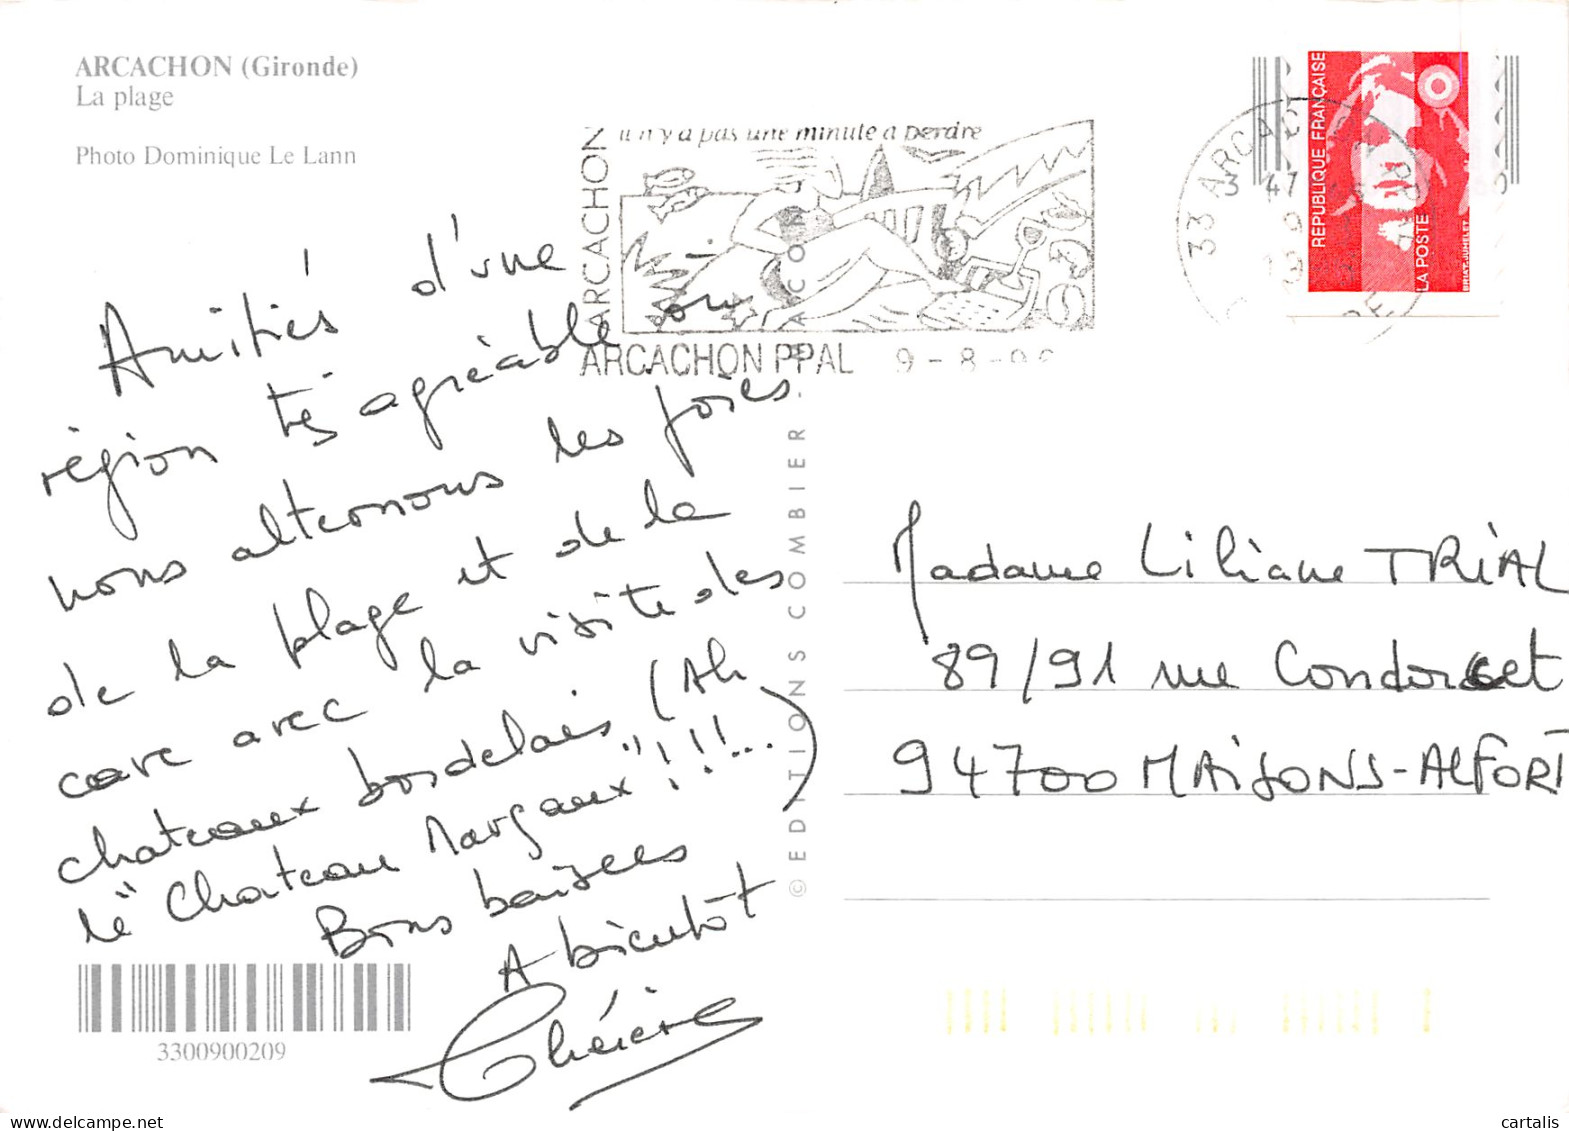 ARCACHON (Gironde)
La plage
Photo Dominique Le Lann
il n'y a pas une minute à perdre
ARCACHON
ARCACHON PPAL 9-8-
33 ARCAC
REPUBLIQUE FRANÇAISE
LA POSTE
BRIAT-JUMELET
Amitiés d'une
région très agréable où
nous alternons les joies
de la plage et de la
cave avec la visite des
chateaux bordelais (Ah
le "Chateau Margaux"!!!...)
Bons baisers
A bientôt
© EDITIONS COMBIER - MACON
Madame Liliane TRIAL
89/91 rue Condorcet
94700 MAISONS-ALFORT
3300900209
www.delcampe.net
cartalis